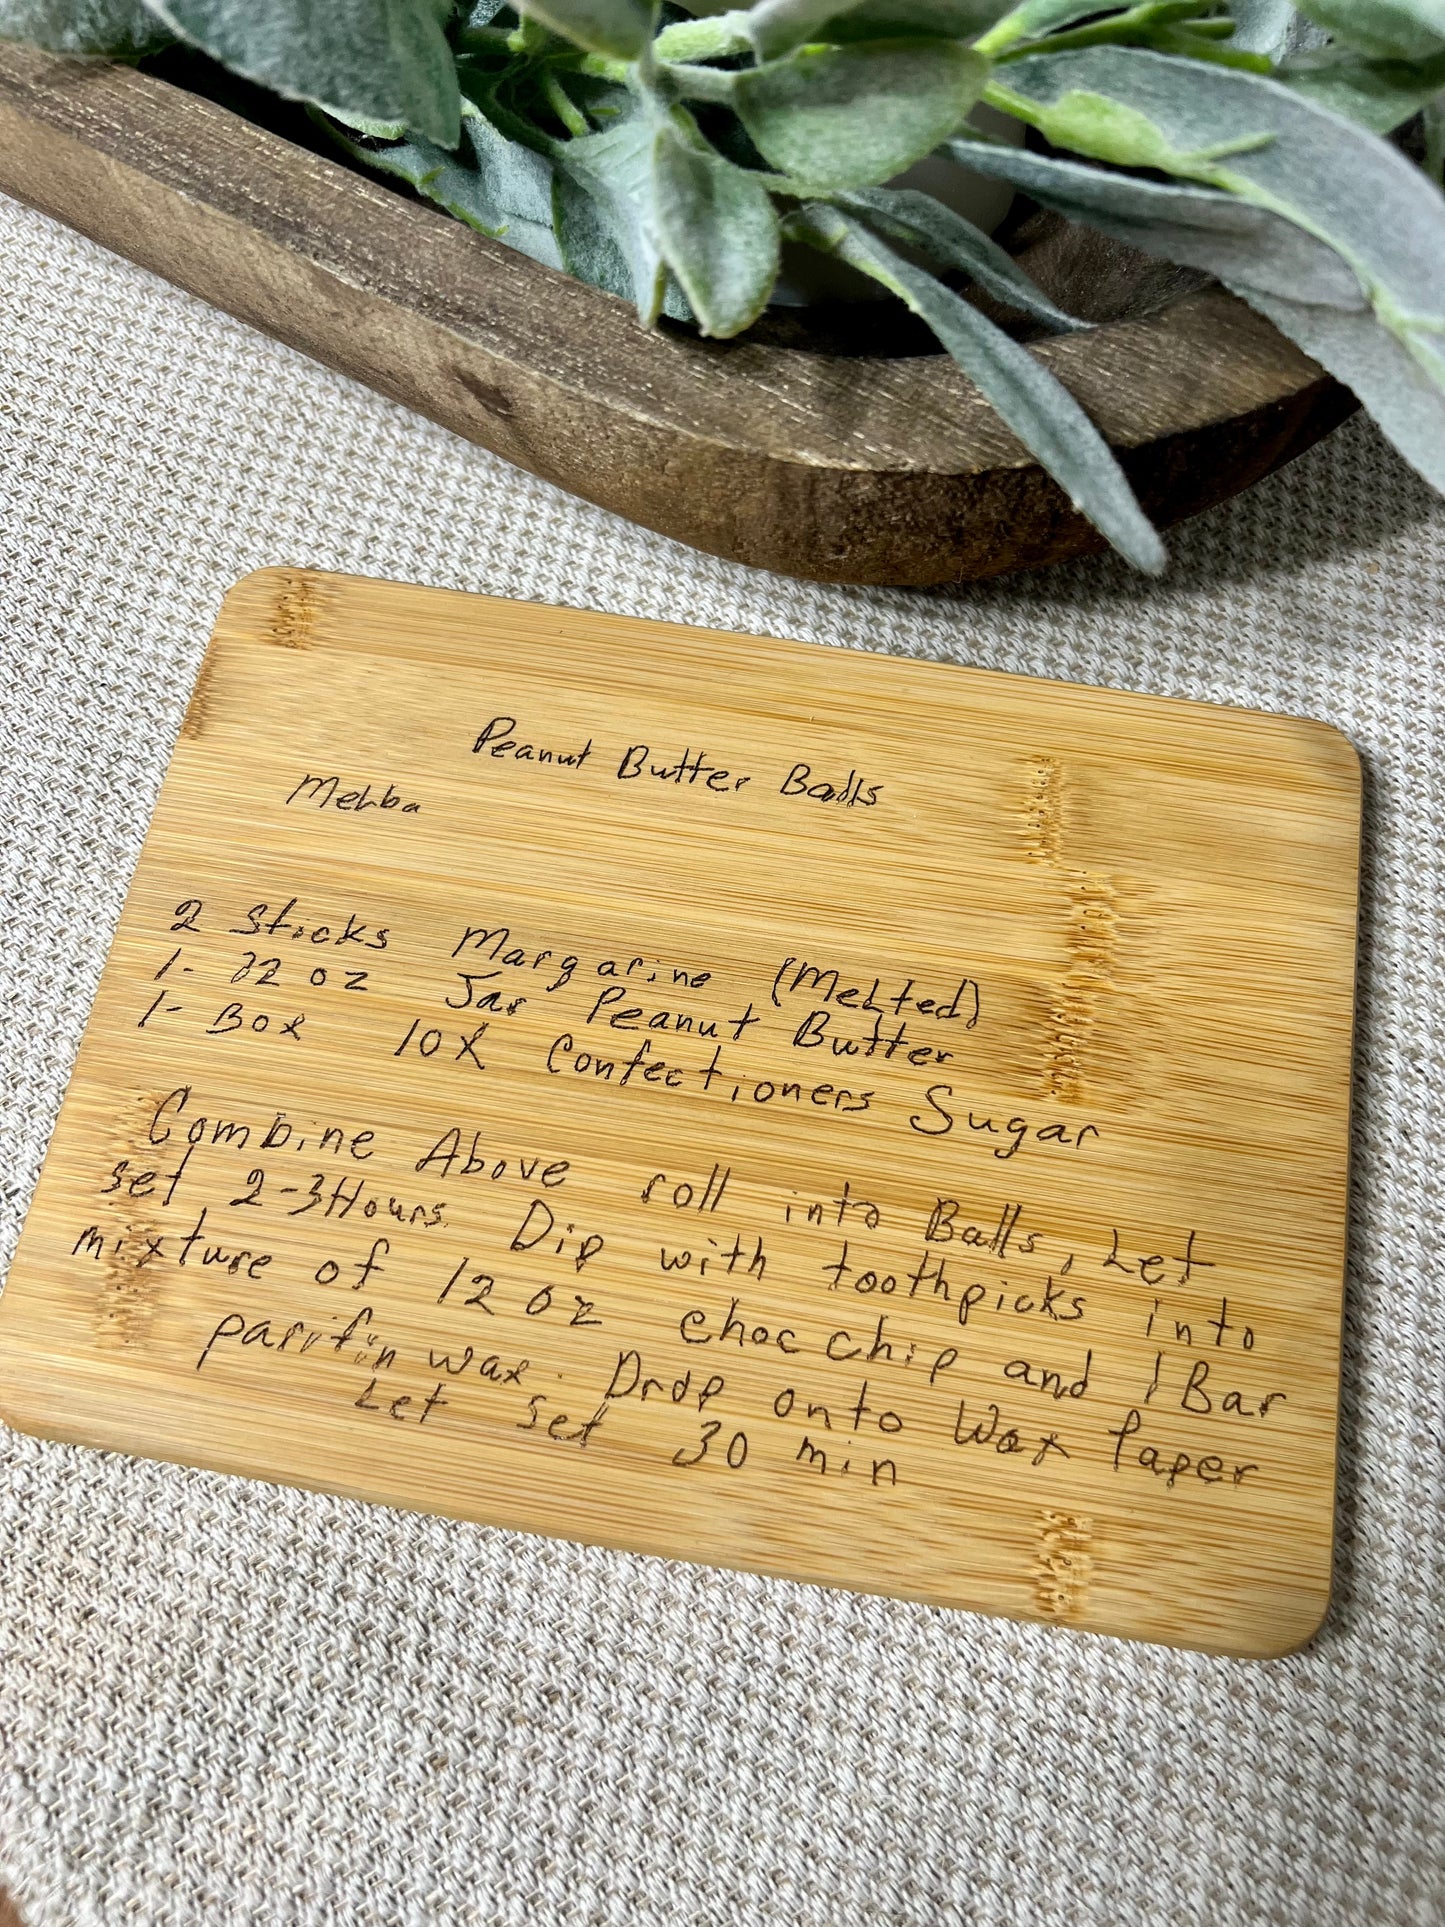 Peanut Butter Balls
Melba
2 Sticks Margarine (Melted)
1- 22 oz Jar Peanut Butter
1- Box 10X Confectioners Sugar
Combine Above roll into Balls, Let
set 2-3 Hours. Dip with toothpicks into
mixture of 12 oz choc chip and 1 Bar
parifin wax. Drop onto Wax Paper
Let set 30 min